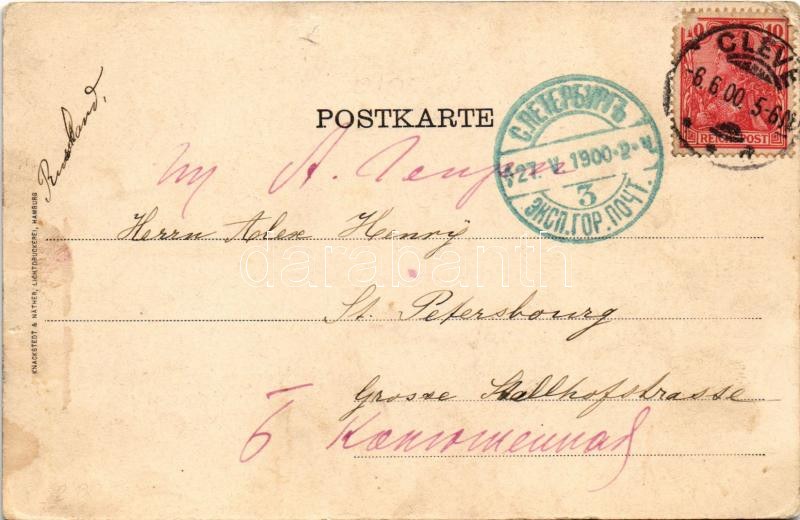 CLEVE
-6.6.00 5-6N
REICHSPOST
С.ПЕТЕРБУРГЪ
27. V. 1900
3
ЭКСП.ГОР.ПОЧТ.
POSTKARTE
Russland.
А. Генри
Herrn Alex Henry
St. Petersbourg
Grosse Stallhofstrasse
Б Конюшенная
KNACKSTEDT & NÄTHER, LICHTDRUCKEREI, HAMBURG
darabanth